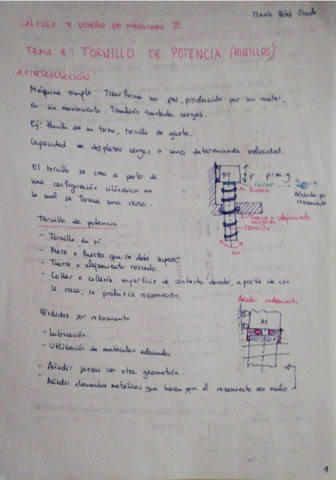 CÁLCULO Y DISEÑO DE MÁQUINAS II
TEMA 1: TORNILLO DE POTENCIA (HUSILLOS)
1.1 INTRODUCCIÓN
Máquina simple. Transforma un par, producido por un motor
en un movimiento. También traslada cargas.
Ej: Husillo de un torno, tornillo de ajuste.
Capacidad de desplazar cargas a una determinada velocidad.
El tornillo se crea a partir de
una configuración cilíndrica en
la cual se forma una rosca.
F
Collar
Rosca
Pérdidas por
rozamiento
Tuerca o alojamiento
roscado
Tornillo
ω
Tornillo de potencia
- Tornillo en sí
- Masa o fuerza que se debe superar
- Tuerca o alojamiento roscado
- Collar o collarín: superficie de contacto donde, aparte de con
la rosca, se produciría rozamiento.
Añadir rodamientos
M
Pérdidas por rozamiento
- Lubricación
- Utilización de materiales adecuados
- Añadir piezas con otra geometría.
- Añadir elementos metálicos que hacen que el rozamiento sea
1